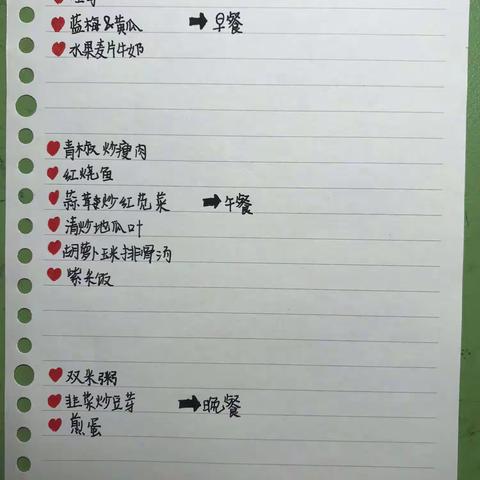 蓝梅&黄瓜 ➡早餐
水果麦片牛奶
青椒炒瘦肉
红烧鱼
蒜茸炒红苋菜 ➡午餐
清炒地瓜叶
胡萝卜玉米排骨汤
紫米饭
双米粥
韭菜炒豆芽 ➡晚餐
煎蛋